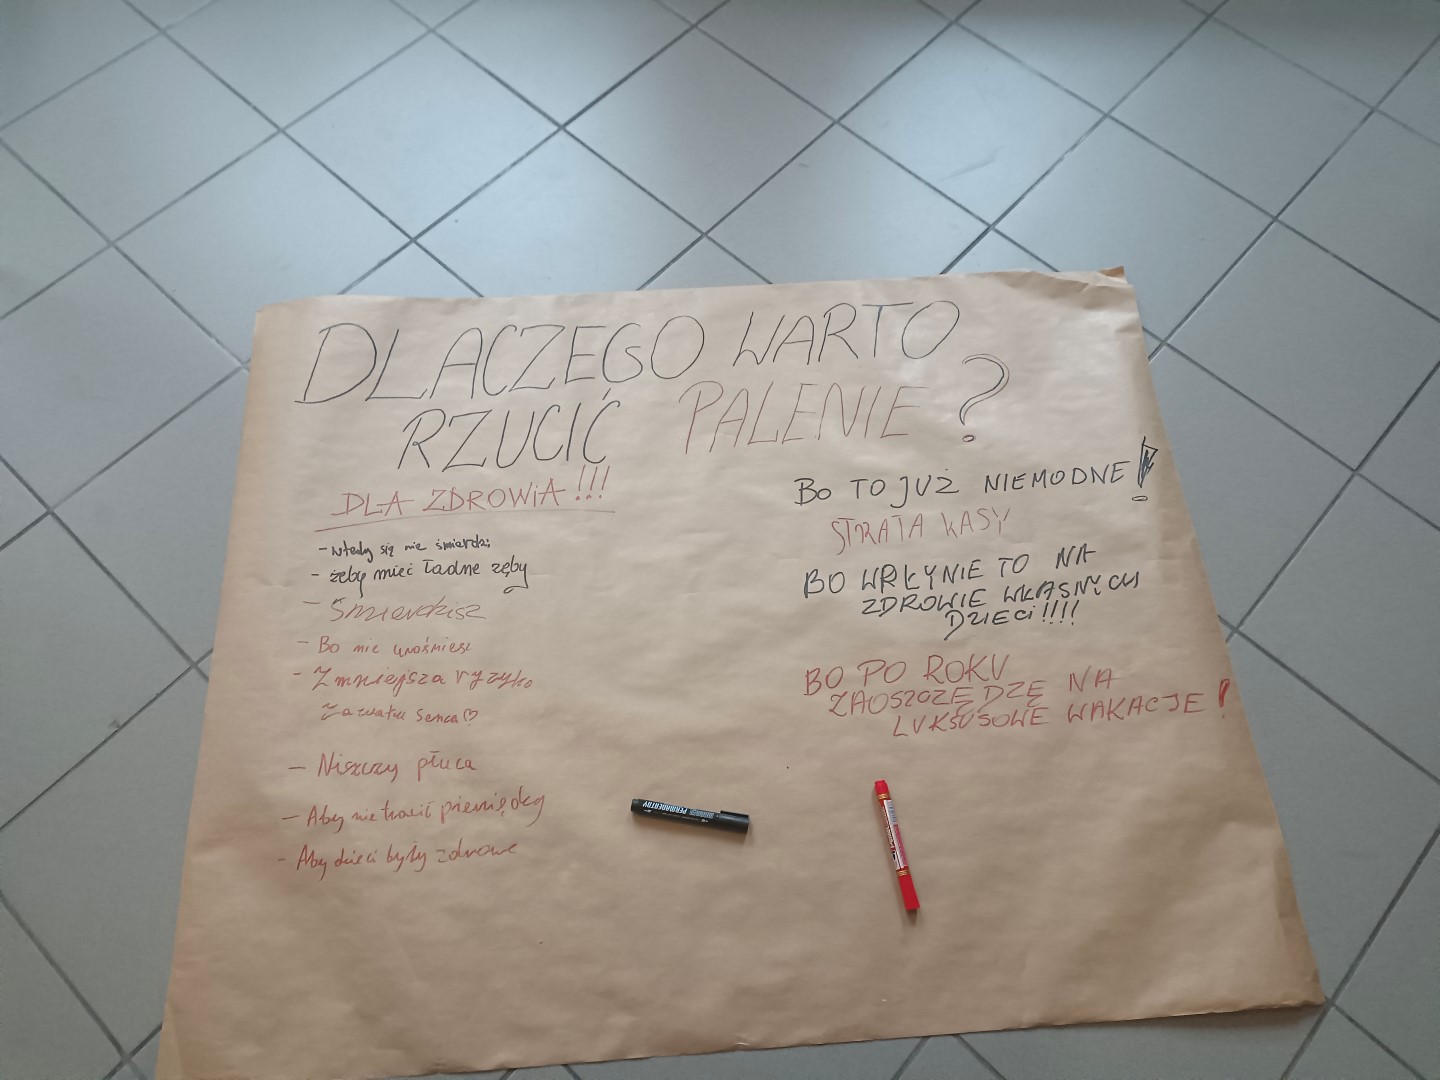 DLACZEGO WARTO
RZUCIĆ PALENIE?
DLA ZDROWIA!!!
- wtedy się nie śmierdzi
- żeby mieć ładne zęby
- Śmierdzisz
- Bo nie urośniesz
- Zmniejsza ryzyko
zawału serca ♡
- Niszczy płuca
- Aby nie tracić pieniędzy
- Aby dzieci były zdrowe
BO TO JUŻ NIEMODNE!
STRATA KASY
BO WPŁYNIE TO NA
ZDROWIE WŁASNYCH
DZIECI!!!!
BO PO ROKU
ZAOSZCZĘDZĘ NA
LUKSUSOWE WAKACJE!
PERMANENTNY